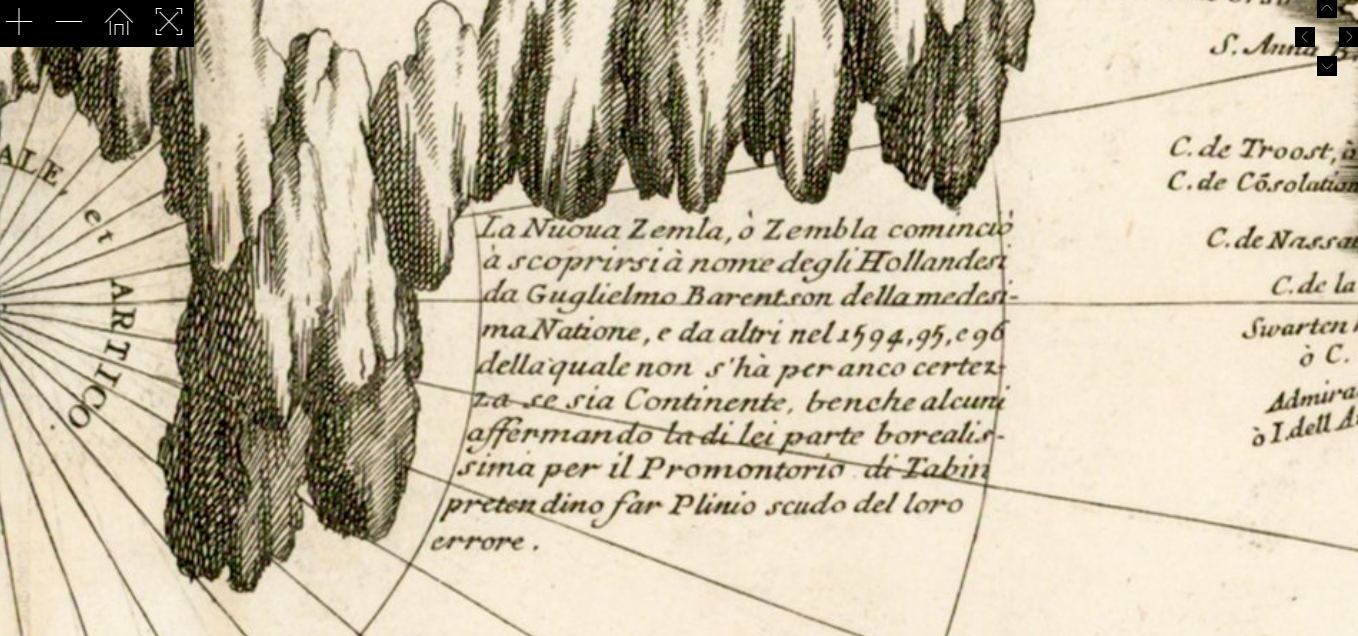 ALE, et
ARTICO
La Nuoua Zemla, ò Zembla cominciò
à scoprirsi à nome degli Hollandesi
da Guglielmo Barentson della medesi-
ma Natione, e da altri nel 1594, 95, e 96
della quale non s'hà per anco certez-
za se sia Continente, benche alcuni
affermando la di lei parte borealis-
sima per il Promontorio di Tabin
pretendino far Plinio scudo del loro
errore.
S. Anna
C. de Troost, ò
C. de Cõsolation
C. de Nassa
C. de la
Swarten
ò C.
Admira
ò I. dell